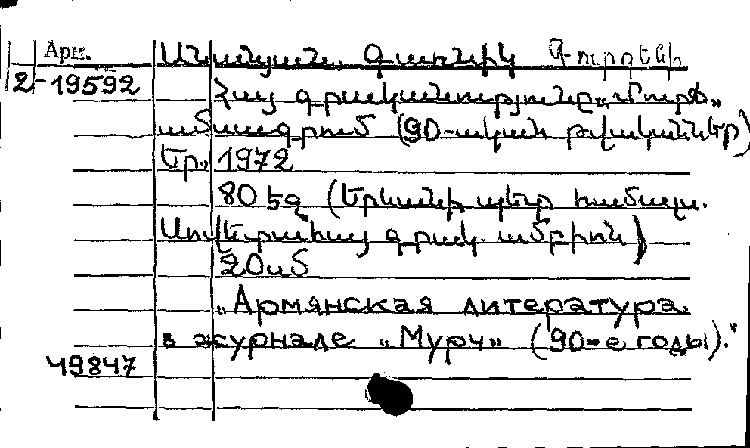 Арм.
2-19592
Անանյան, Գառնիկ Գուրգենի
Հայ գրականությունը „Մուրճ„
ամսագրում (90-ական թվականներ)
Եր., 1972
80 էջ (Երևանի պետ. համալս.
Սովետահայ գրակ. ամբիոն)
20սմ
„Армянская литература
в журнале „Мурч" (90-е годы)."
49847